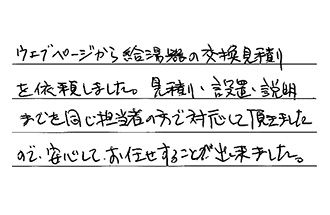 ウェブページから給湯器の交換見積り
を依頼しました。見積り・設置・説明
までを同じ担当者の方で対応して頂きました
ので、安心してお任せすることが出来ました。